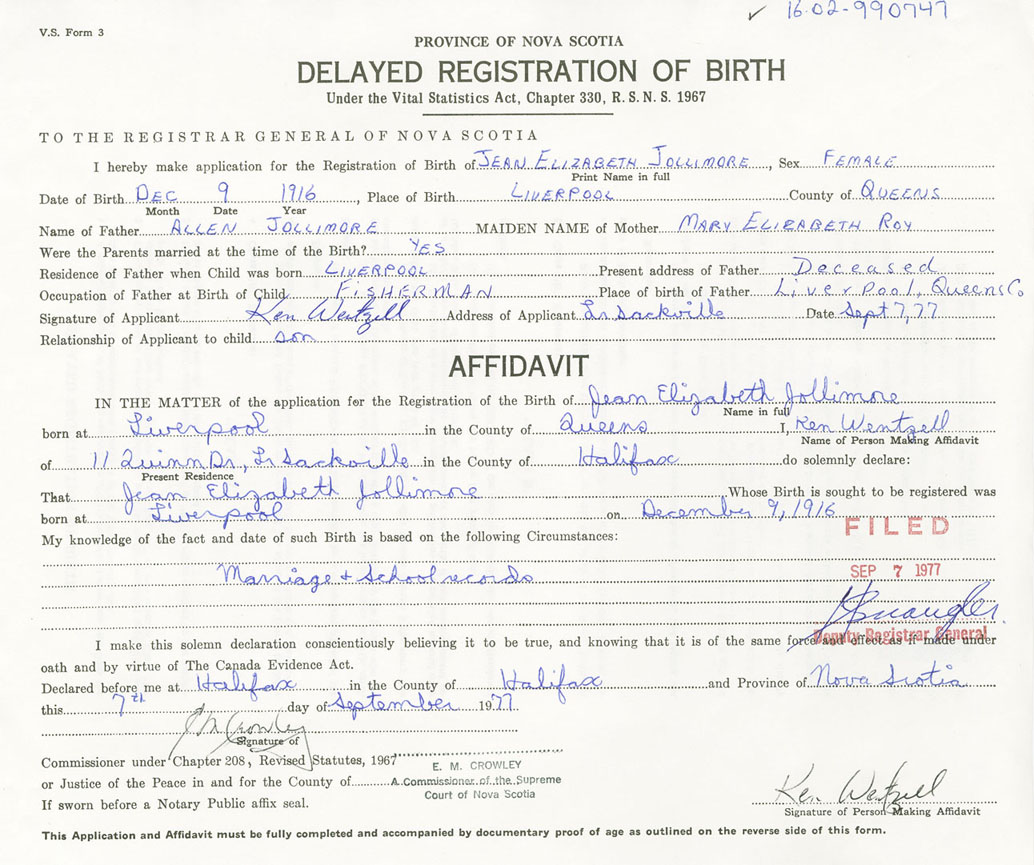 ✓ 16-02-990747
V.S. Form 3
PROVINCE OF NOVA SCOTIA
DELAYED REGISTRATION OF BIRTH
Under the Vital Statistics Act, Chapter 330, R.S.N.S. 1967
TO THE REGISTRAR GENERAL OF NOVA SCOTIA
I hereby make application for the Registration of Birth of JEAN ELIZABETH JOLLIMORE, Sex FEMALE
Print Name in full
Date of Birth DEC 9 1916, Place of Birth LIVERPOOL County of QUEENS
Month Date Year
Name of Father ALLEN JOLLIMORE MAIDEN NAME of Mother MARY ELIZABETH ROY
Were the Parents married at the time of the Birth? YES
Residence of Father when Child was born LIVERPOOL Present address of Father Deceased
Occupation of Father at Birth of Child FISHERMAN Place of birth of Father LiverPool, Queens Co
Signature of Applicant Ken Wentzell Address of Applicant Lr Sackville Date Sept 7, 77
Relationship of Applicant to child son
AFFIDAVIT
IN THE MATTER of the application for the Registration of the Birth of Jean Elizabeth Jollimore
Name in full
born at Liverpool in the County of Queens I, Ken Wentzell
Name of Person Making Affidavit
of 11 Quinn Dr., Lr Sackville in the County of Halifax do solemnly declare:
Present Residence
That Jean Elizabeth Jollimore Whose Birth is sought to be registered was
born at Liverpool on December 9, 1916
FILED
My knowledge of the fact and date of such Birth is based on the following Circumstances:
Marriage + School records
SEP 7 1977
Deputy Registrar General
I make this solemn declaration conscientiously believing it to be true, and knowing that it is of the same force and effect as if made under
oath and by virtue of The Canada Evidence Act.
Declared before me at Halifax in the County of Halifax and Province of Nova Scotia
this 7th day of September 1977
E M Crowley
Signature of
Commissioner under Chapter 208, Revised Statutes, 1967
E. M. CROWLEY
or Justice of the Peace in and for the County of A Commissioner of the Supreme
Court of Nova Scotia
If sworn before a Notary Public affix seal.
Ken Wentzell
Signature of Person Making Affidavit
This Application and Affidavit must be fully completed and accompanied by documentary proof of age as outlined on the reverse side of this form.